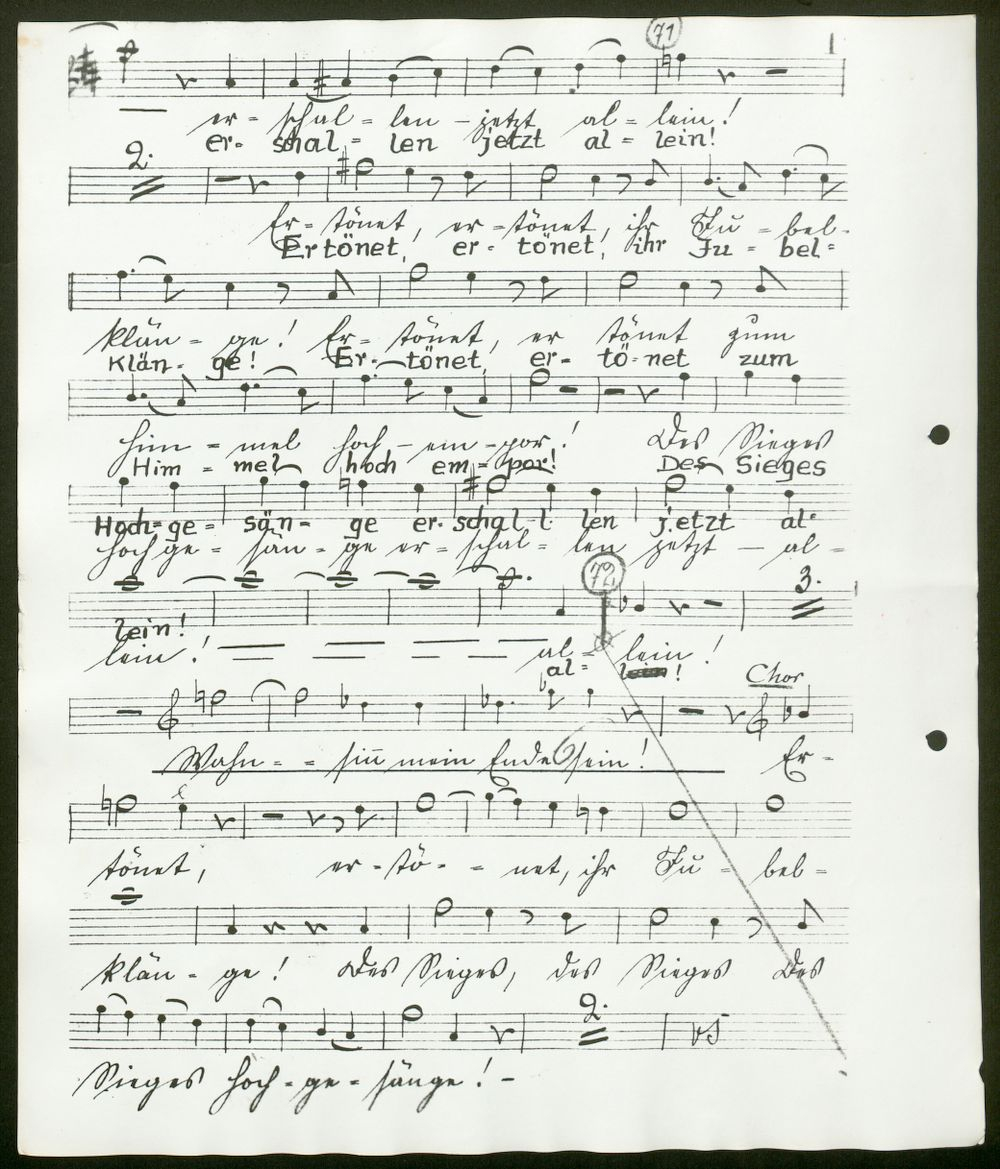 71
er- schal- len - jetzt al- lein!
er- schal- len jetzt al- lein!
2.
Er- tönet, er- tönet, ihr Ju - bel-
Ertönet, er- tönet, ihr Ju - bel-
klän - ge! Er- tönet, er tönet zum
Klän- ge! Er- tönet, er- tö-net zum
Him - mel hoch - em - por! Des Sieges
Him - mel hoch em- por! Des Sieges
Hoch- ge- sän- ge er- schal- len jetzt al-
Hoch ge- sän- ge er- schal- len jetzt - al-
72
3.
lein!
lein! al- lein!
al- lein!
Chor
Wahn - - sinn mein Ende sein! Er-
tönet, er- tö - - net, ihr Ju - bel-
klän - ge! Des Sieges, des Sieges Des
2.
VS
Sieges Hoch- ge- sänge! -